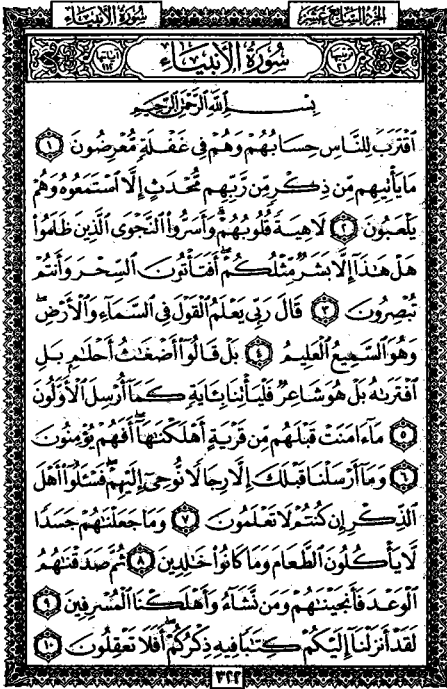 الجزء السابع عشر
سورة الأنبياء
ترتيبها ٢١
سُورَةُ الأَنبِيَاءِ
آياتها ١١٢
بِسْمِ اللَّهِ الرَّحْمَٰنِ الرَّحِيمِ
ٱقْتَرَبَ لِلنَّاسِ حِسَابُهُمْ وَهُمْ فِى غَفْلَةٍ مُّعْرِضُونَ ١
مَا يَأْتِيهِم مِّن ذِكْرٍ مِّن رَّبِّهِم مُّحْدَثٍ إِلَّا ٱسْتَمَعُوهُ وَهُمْ
يَلْعَبُونَ ٢ لَاهِيَةً قُلُوبُهُمْ ۗ وَأَسَرُّوا۟ ٱلنَّجْوَى ٱلَّذِينَ ظَلَمُوا۟
هَلْ هَٰذَآ إِلَّا بَشَرٌ مِّثْلُكُمْ ۖ أَفَتَأْتُونَ ٱلسِّحْرَ وَأَنتُمْ
تُبْصِرُونَ ٣ قَالَ رَبِّى يَعْلَمُ ٱلْقَوْلَ فِى ٱلسَّمَآءِ وَٱلْأَرْضِ ۖ
وَهُوَ ٱلسَّمِيعُ ٱلْعَلِيمُ ٤ بَلْ قَالُوٓا۟ أَضْغَٰثُ أَحْلَٰمٍۭ بَلِ
ٱفْتَرَىٰهُ بَلْ هُوَ شَاعِرٌ فَلْيَأْتِنَا بِـَٔايَةٍ كَمَآ أُرْسِلَ ٱلْأَوَّلُونَ
٥ مَآ ءَامَنَتْ قَبْلَهُم مِّن قَرْيَةٍ أَهْلَكْنَٰهَآ ۖ أَفَهُمْ يُؤْمِنُونَ
٦ وَمَآ أَرْسَلْنَا قَبْلَكَ إِلَّا رِجَالًا نُّوحِىٓ إِلَيْهِمْ ۖ فَسْـَٔلُوٓا۟ أَهْلَ
ٱلذِّكْرِ إِن كُنتُمْ لَا تَعْلَمُونَ ٧ وَمَا جَعَلْنَٰهُمْ جَسَدًا
لَّا يَأْكُلُونَ ٱلطَّعَامَ وَمَا كَانُوا۟ خَٰلِدِينَ ٨ ثُمَّ صَدَقْنَٰهُمُ
ٱلْوَعْدَ فَأَنجَيْنَٰهُمْ وَمَن نَّشَآءُ وَأَهْلَكْنَا ٱلْمُسْرِفِينَ ٩
لَقَدْ أَنزَلْنَآ إِلَيْكُمْ كِتَٰبًا فِيهِ ذِكْرُكُمْ ۖ أَفَلَا تَعْقِلُونَ ١٠
٣٢٢